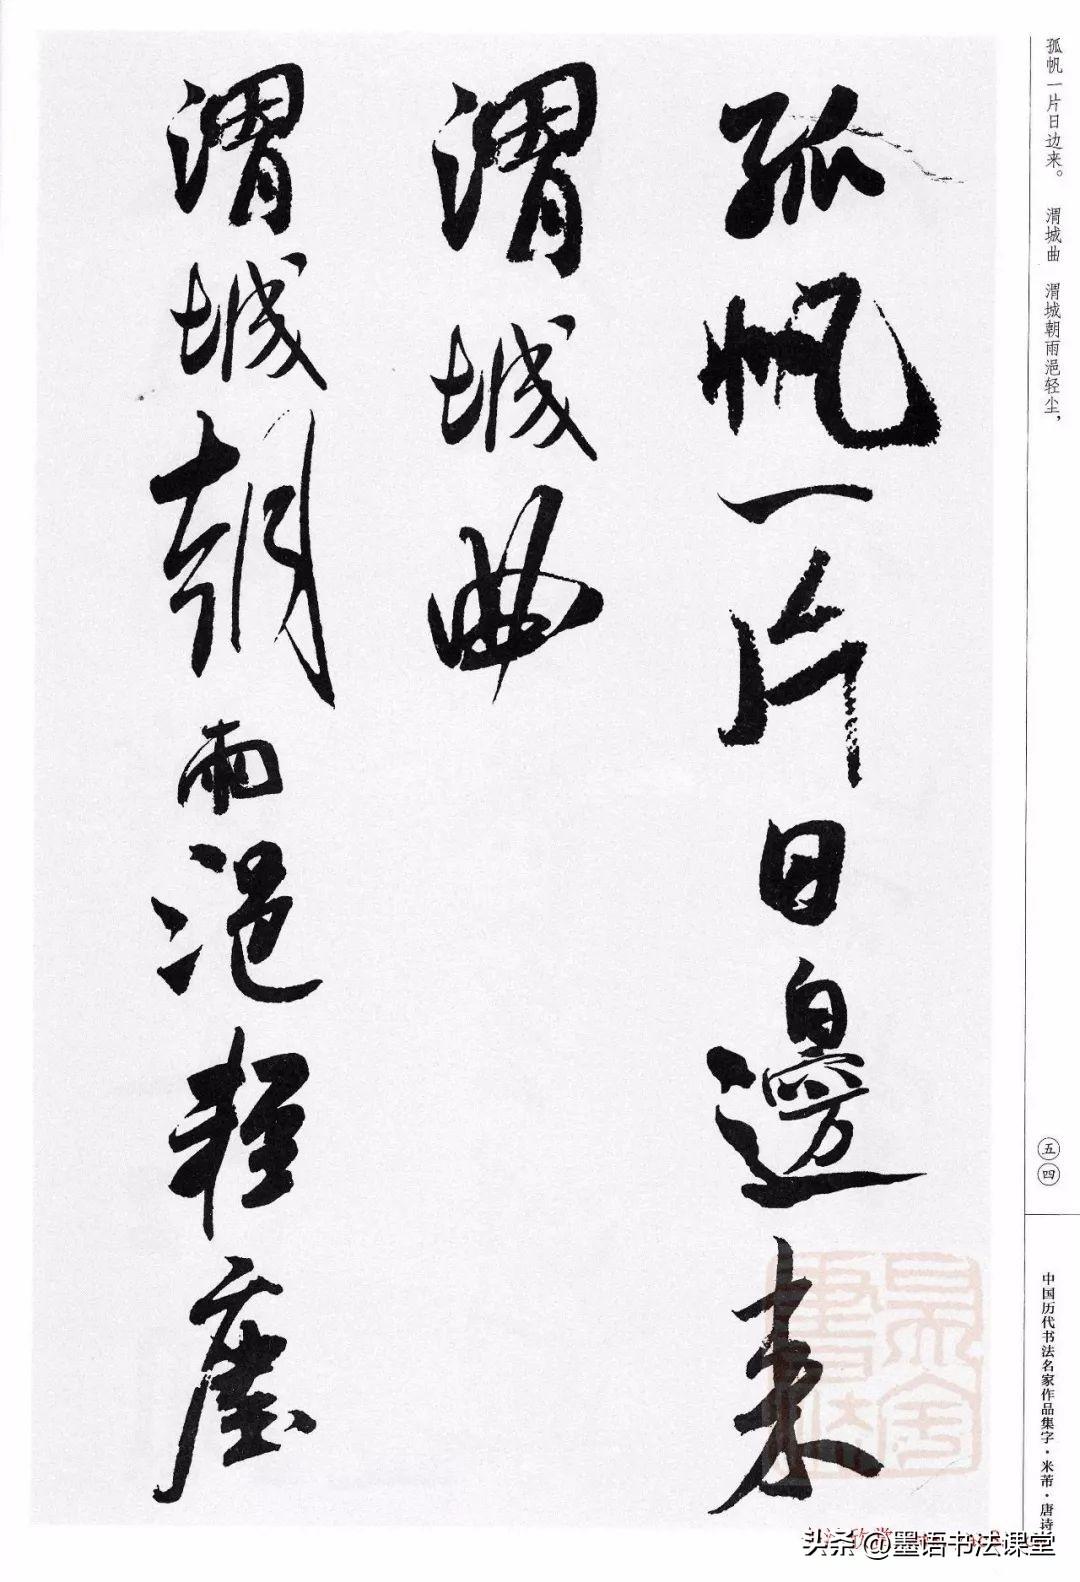 孤帆一片日边来。　渭城曲　渭城朝雨浥轻尘，
五四
中国历代书法名家作品集字·米芾·唐诗
孤帆一片日邊来
渭城曲
渭城朝雨浥輕塵
头条@墨语书法课堂